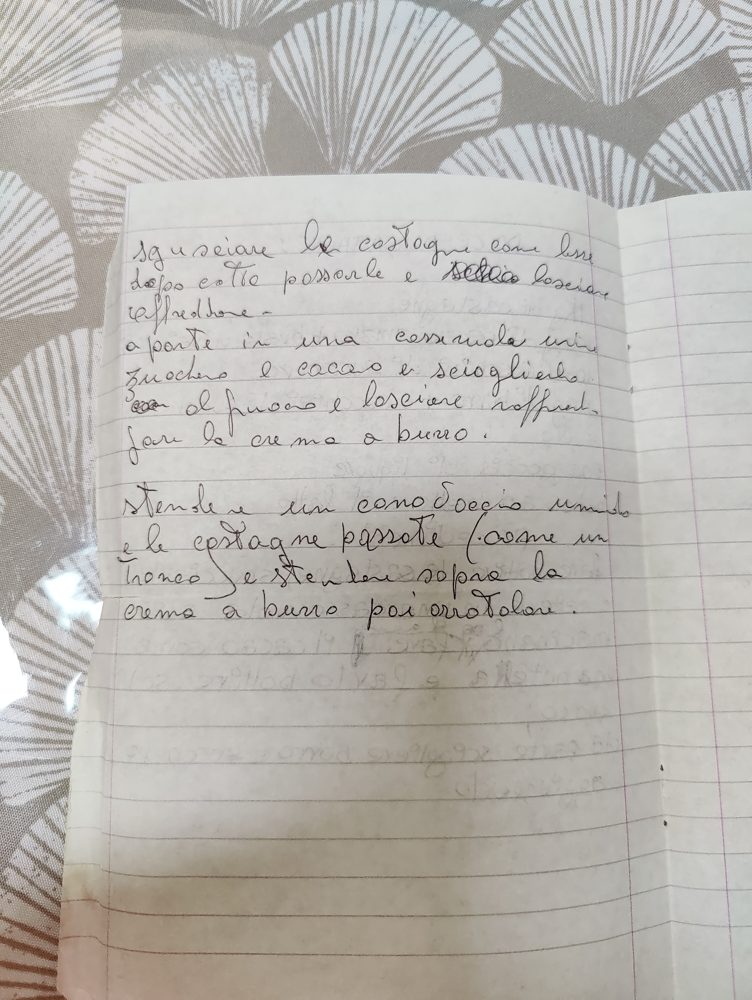 sgusciare le castagne come lesse
dopo cotte passarle e lasciare
raffreddare -
a parte in una casseruola unire
zucchero e cacao e scioglierlo
al fuoco e lasciare raffred-
fare la crema a burro.
stendere un canovaccio umido
e le castagne passate (come un
tronco) e stendere sopra la
crema a burro poi arrotolare.